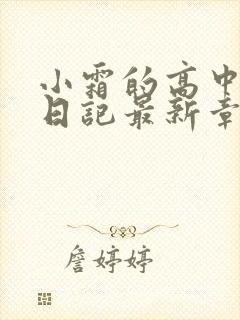 小霜的高中
日記最新章
詹婷婷